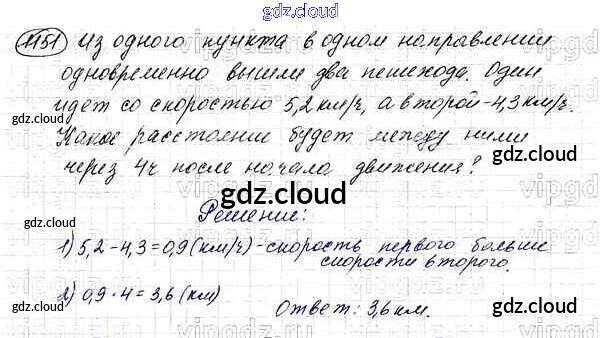 gdz.cloud
1151 Из одного пункта в одном направлении
одновременно вышли два пешехода. Один
идет со скоростью 5,2 км/ч, а второй - 4,3 км/ч.
Какое расстоянии будет между ними
через 4ч после начала движения?
gdz.cloud
gdz.cloud
gdz.cloud
gdz.cloud
Решение:
1) 5,2-4,3=0,9 (км/ч) - скорость первого больше
скорости второго.
2) 0,9·4=3,6 (км)
Ответ: 3,6 км.
gdz.cloud
gdz.cloud